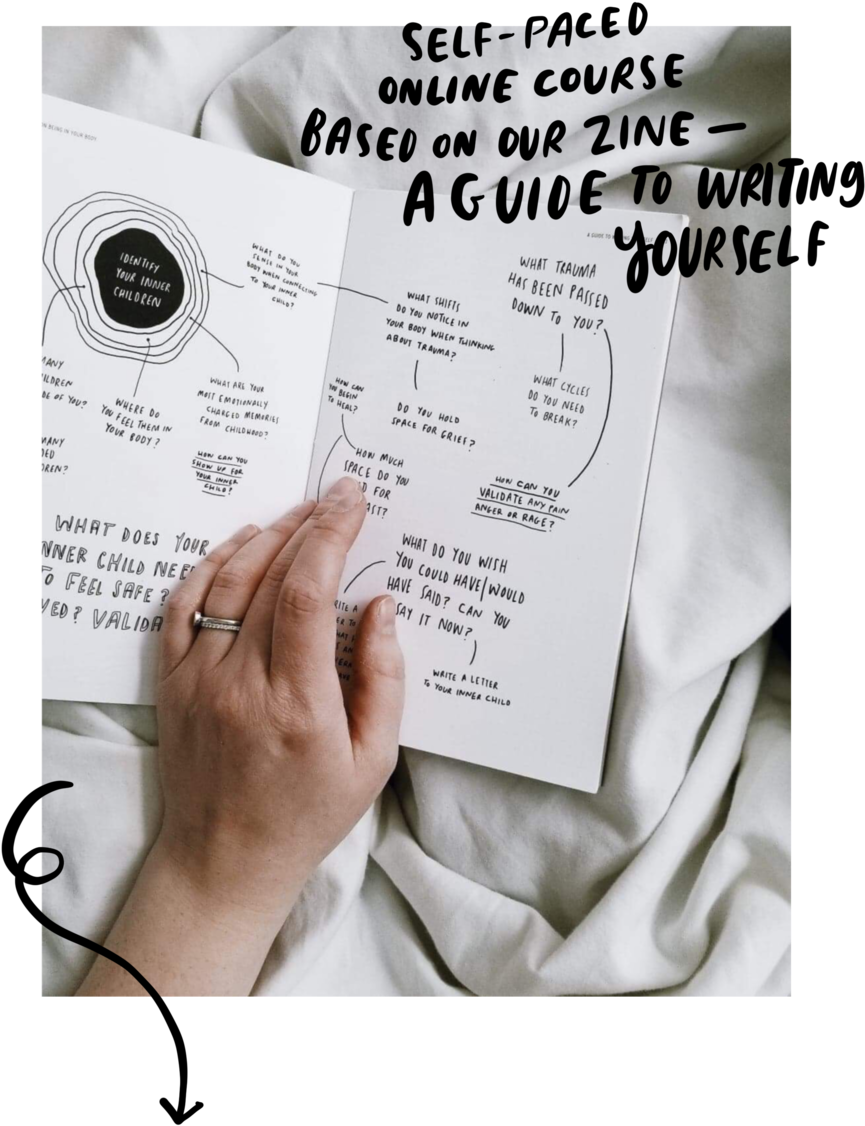 SELF-PACED
ONLINE COURSE
BASED ON OUR ZINE —
A GUIDE TO WRITING
YOURSELF
BEING IN YOUR BODY
IDENTIFY
YOUR INNER
CHILDREN
WHAT DO YOU
SENSE IN YOUR
BODY WHEN CONNECTING
TO YOUR INNER
CHILD?
WHERE DO
YOU FEEL THEM IN
YOUR BODY?
WHAT ARE YOUR
MOST EMOTIONALLY
CHARGED MEMORIES
FROM CHILDHOOD?
HOW CAN YOU
SHOW UP FOR
YOUR INNER
CHILD?
OF YOU?
WHAT DOES YOUR
INNER CHILD
TO FEEL SAFE?
A GUIDE TO
WHAT SHIFTS
DO YOU NOTICE IN
YOUR BODY WHEN THINKING
ABOUT TRAUMA?
WHAT TRAUMA
HAS BEEN PASSED
DOWN TO YOU?
WHAT CYCLES
DO YOU NEED
TO BREAK?
HOW CAN
YOU BEGIN
TO HEAL?
DO YOU HOLD
SPACE FOR GRIEF?
HOW MUCH
SPACE DO YOU
FOR
HOW CAN YOU
VALIDATE ANY PAIN
ANGER OR RAGE?
WHAT DO YOU WISH
YOU COULD HAVE/WOULD
HAVE SAID? CAN YOU
SAY IT NOW?
WRITE A LETTER
TO YOUR INNER CHILD